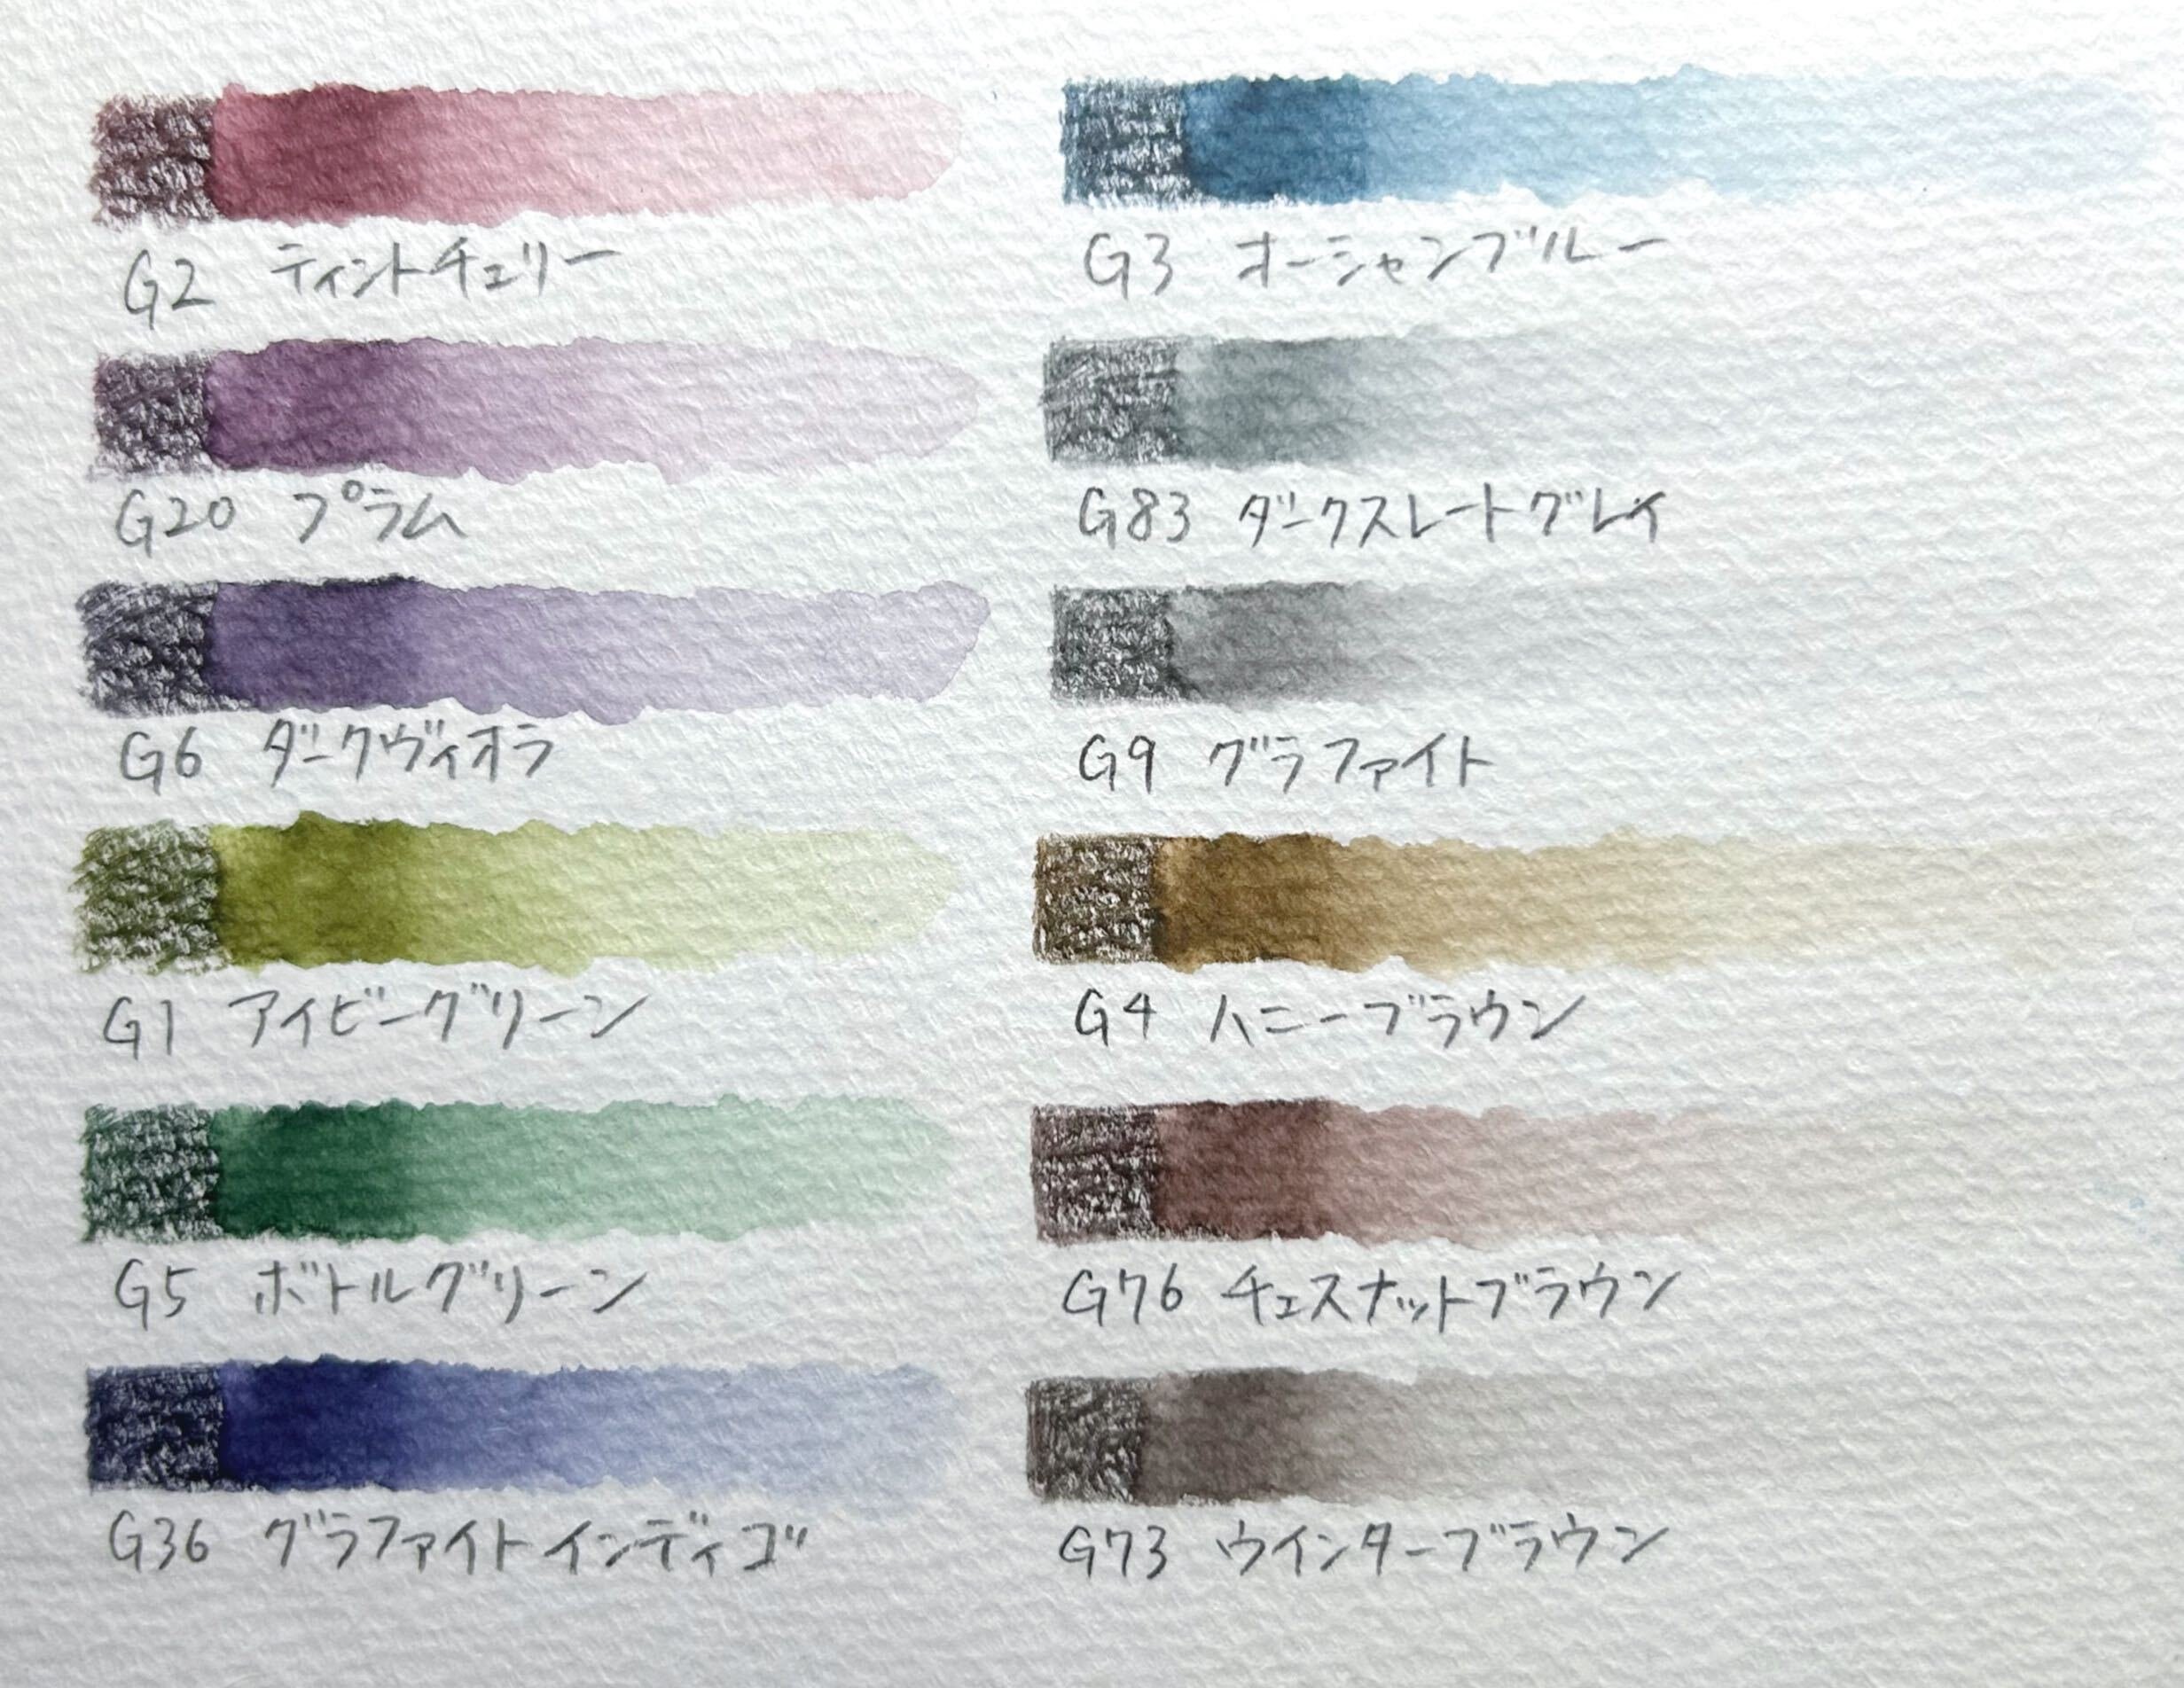 G2 ティントチェリー
G20 プラム
G6 ダークヴィオラ
G1 アイビーグリーン
G5 ボトルグリーン
G36 グラファイトインディゴ
G3 オーシャンブルー
G83 ダークスレートグレイ
G9 グラファイト
G4 ハニーブラウン
G76 チェスナットブラウン
G73 ウインターブラウン